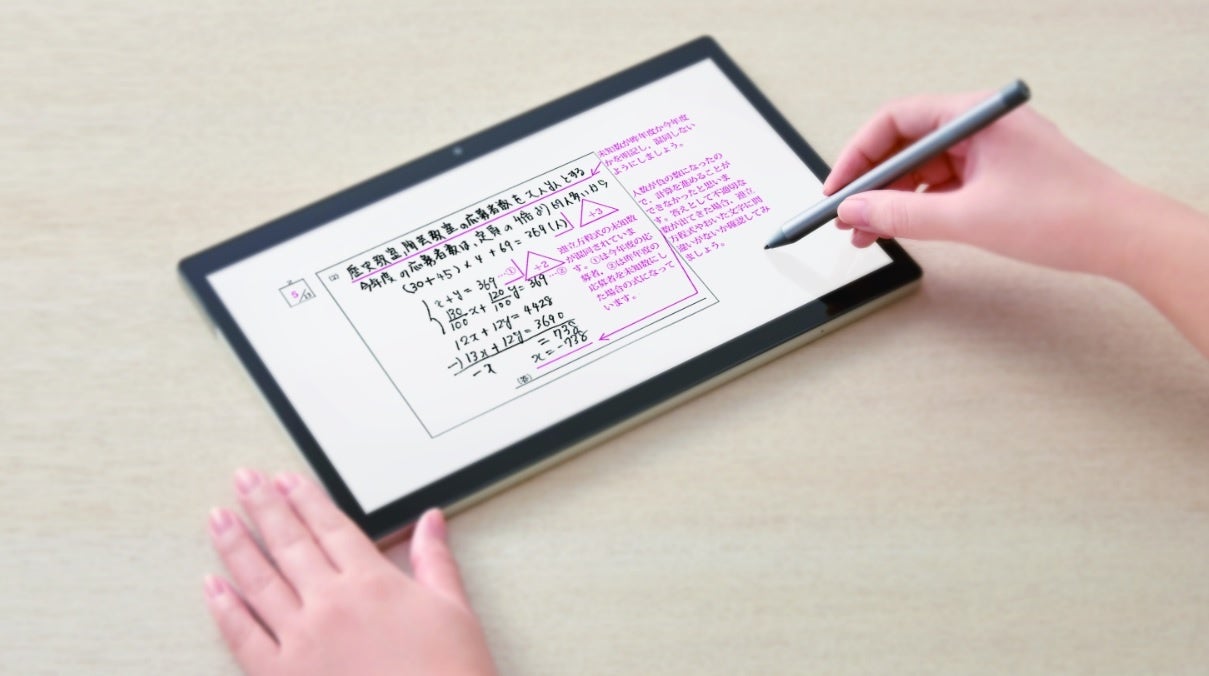 5
/13
(2)
歴史教室、陶芸教室の応募者数をx人、y人とする
今年度の応募者数は、定員の4倍より69人多いから
(30+45)×4+69=369(人)
x+y=369 …①
130/100x+120/100y=369 …②
12x+12y=4428
−)13x+12y=3690
−x =738
x=−738
(答)
+2
+3
連立方程式の未知数
が混同されていま
す。①は今年度の応
募者、②は昨年度の
応募者を未知数にし
た場合の式になって
います。
未知数が昨年度か今年度
かを明記し、混同しない
ようにしましょう。
人数が負の数になったの
で、計算を進めることが
できなかったと思いま
す。答えとして不適切な
数が出てきた場合、連立
方程式やおいた文字に間
違いがないか確認してみ
ましょう。